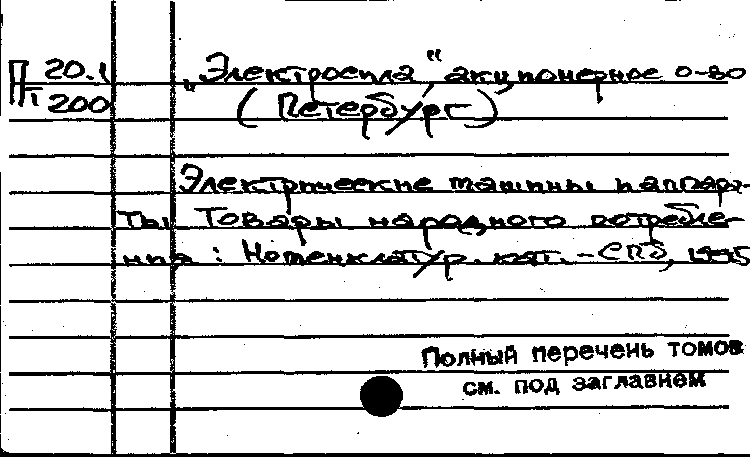 П 20.1 „Электросила“, акционерное о-во
П1 200 (Петербург)
Электрические машины и аппара-
ты Товары народного потребле-
ния : Номенклатур. кат. – СПб, 1995
Полный перечень томов
см. под заглавием